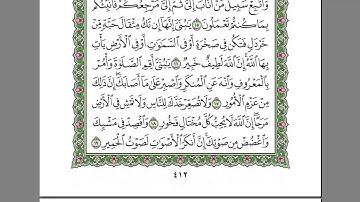 وَٱتَّبِعۡ سَبِيلَ مَنۡ أَنَابَ إِلَيَّۚ ثُمَّ إِلَيَّ مَرۡجِعُكُمۡ فَأُنَبِّئُكُم
بِمَا كُنتُمۡ تَعۡمَلُونَ ١٥ يَٰبُنَيَّ إِنَّهَآ إِن تَكُ مِثۡقَالَ حَبَّةٖ مِّنۡ
خَرۡدَلٖ فَتَكُن فِي صَخۡرَةٍ أَوۡ فِي ٱلسَّمَٰوَٰتِ أَوۡ فِي ٱلۡأَرۡضِ يَأۡتِ
بِهَا ٱللَّهُۚ إِنَّ ٱللَّهَ لَطِيفٌ خَبِيرٞ ١٦ يَٰبُنَيَّ أَقِمِ ٱلصَّلَوٰةَ وَأۡمُرۡ
بِٱلۡمَعۡرُوفِ وَٱنۡهَ عَنِ ٱلۡمُنكَرِ وَٱصۡبِرۡ عَلَىٰ مَآ أَصَابَكَۖ إِنَّ ذَٰلِكَ
مِنۡ عَزۡمِ ٱلۡأُمُورِ ١٧ وَلَا تُصَعِّرۡ خَدَّكَ لِلنَّاسِ وَلَا تَمۡشِ فِي ٱلۡأَرۡضِ
مَرَحًاۖ إِنَّ ٱللَّهَ لَا يُحِبُّ كُلَّ مُخۡتَالٖ فَخُورٖ ١٨ وَٱقۡصِدۡ فِي مَشۡيِكَ
وَٱغۡضُضۡ مِن صَوۡتِكَۚ إِنَّ أَنكَرَ ٱلۡأَصۡوَٰتِ لَصَوۡتُ ٱلۡحَمِيرِ ١٩
٤١٢